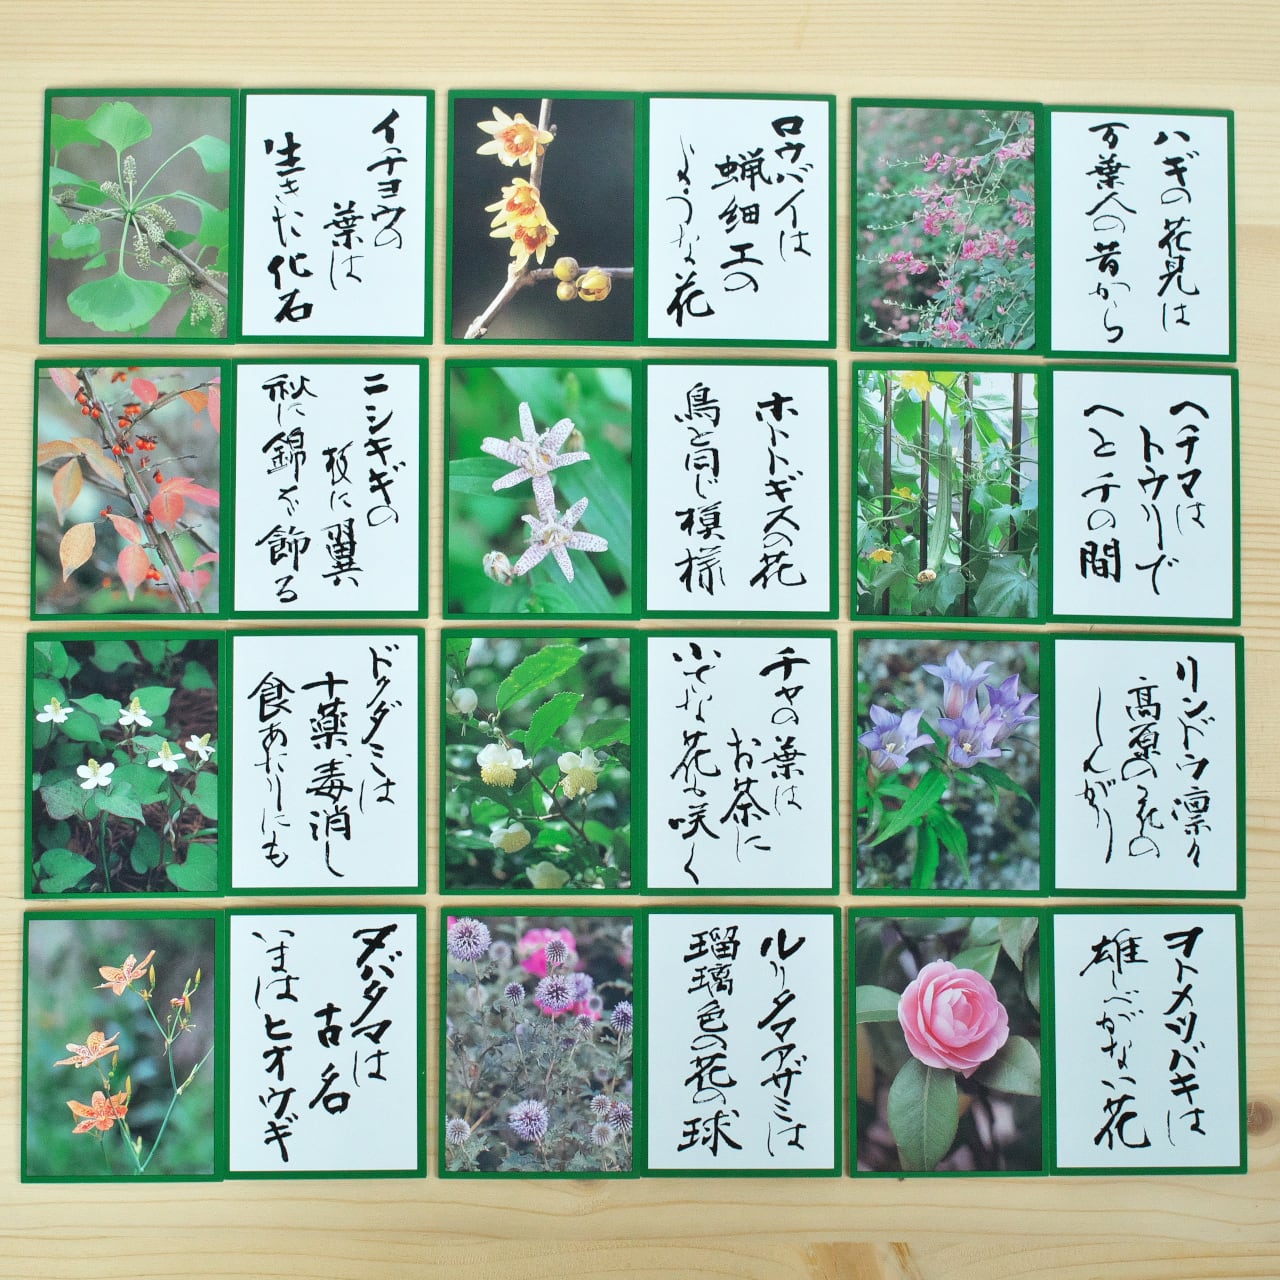 イチョウの
葉は
生きた化石
ロウバイは
蝋細工の
ような花
ハギの花見は
万葉人の昔から
ニシキギの
枝に翼
秋に錦を飾る
ホトトギスの花
鳥と同じ模様
ヘチマは
トウリで
へとチの間
ドクダミは
十薬、毒消し
食あたりにも
チャの葉は
お茶に
小さな花も咲く
リンドウ凛々
高原の花の
しんがり
ヌバタマは
古名
いまはヒオウギ
ルリタマアザミは
瑠璃色の花の球
ヲトメツバキは
雄しべがない花